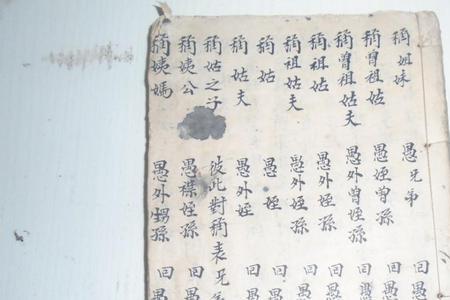 稱姐妹 愚兄弟
稱曾祖姑 愚姪曾孫 回愚
稱曾祖姑夫 愚外曾姪孫 回愚
稱祖姑 愚外姪孫 回愚
稱祖姑夫 愚外姪孫 回愚
稱姑 愚姪 回愚
稱姑夫 愚外姪 回愚
稱姑之子 彼此對稱表兄弟
稱姨公 愚襟姪孫 回愚
稱姨媽 愚外甥孫 回愚